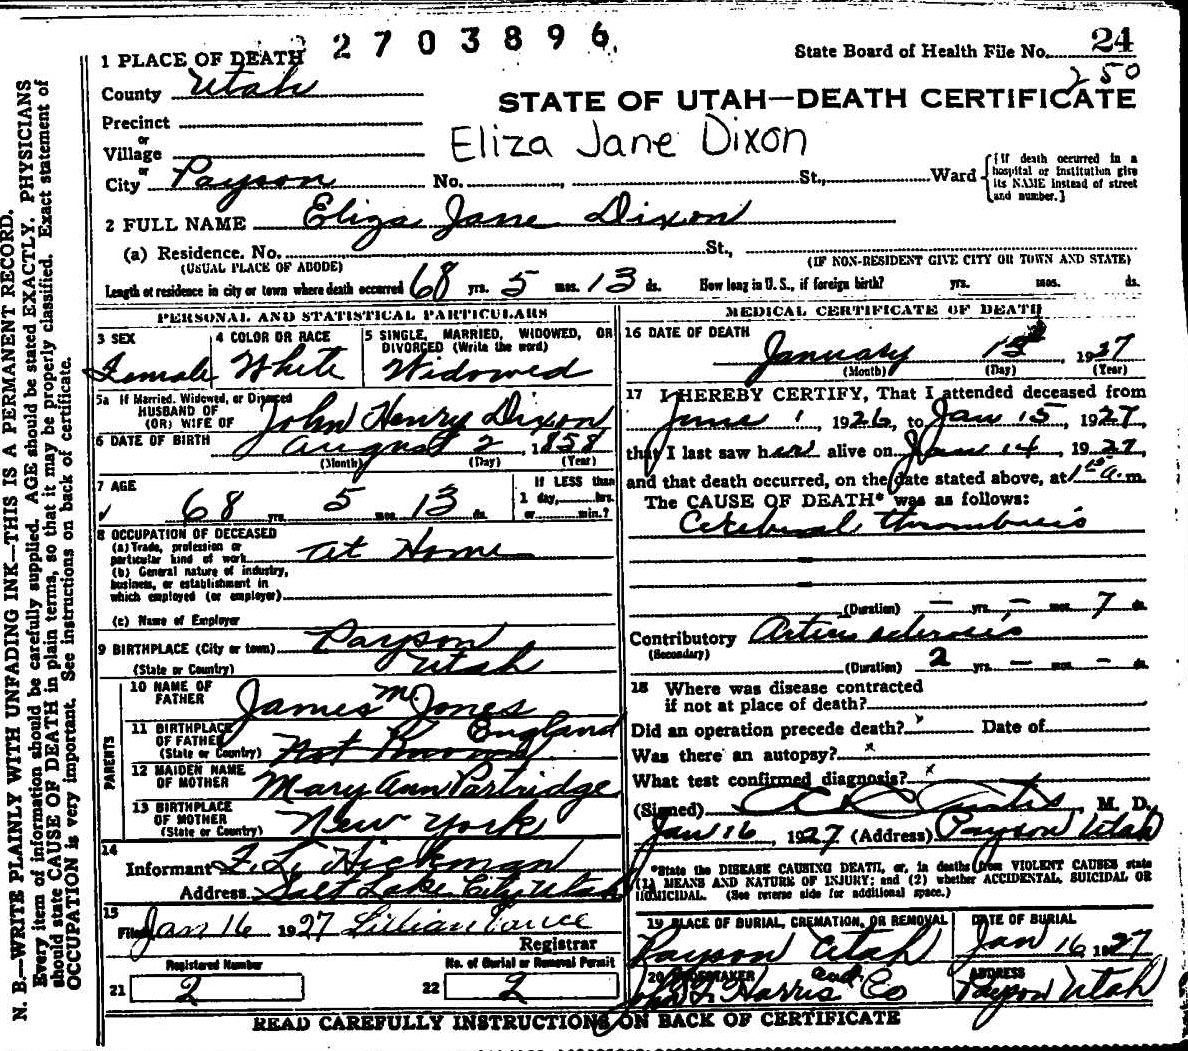 2703896
State Board of Health File No. 24
250
1 PLACE OF DEATH
County Utah
STATE OF UTAH—DEATH CERTIFICATE
Precinct
or
Village
Eliza Jane Dixon
or
City Payson No. , St., Ward {[If death occurred in a hospital or institution give its NAME instead of street and number.]
2 FULL NAME Eliza Jane Dixon
(a) Residence. No. St.,
(USUAL PLACE OF ABODE) (IF NON-RESIDENT GIVE CITY OR TOWN AND STATE)
Length of residence in city or town where death occurred 68 yrs. 5 mos. 13 ds. How long in U. S., if foreign birth? yrs. mos. ds.
PERSONAL AND STATISTICAL PARTICULARS
3 SEX
Female
4 COLOR OR RACE
White
5 SINGLE, MARRIED, WIDOWED, OR
DIVORCED (Write the word)
Widowed
5a If Married, Widowed, or Divorced
HUSBAND OF
(OR) WIFE OF John Henry Dixon
6 DATE OF BIRTH August 2, 1858
(Month) (Day) (Year)
7 AGE
68 yrs. 5 mos. 13 ds.
If LESS than
1 day, hrs.
or min.?
8 OCCUPATION OF DECEASED
(a) Trade, profession or
particular kind of work At Home
(b) General nature of industry,
business, or establishment in
which employed (or employer)
(c) Name of Employer
9 BIRTHPLACE (City or town) Payson
(State or Country) Utah
PARENTS
10 NAME OF
FATHER James M. Jones
11 BIRTHPLACE
OF FATHER England
(State or Country) Not Known
12 MAIDEN NAME
OF MOTHER Mary Ann Partridge
13 BIRTHPLACE
OF MOTHER
(State or Country) New York
14
Informant F. L. Hickman
Address Salt Lake City Utah
15
Filed Jan 16 1927 Lillian
Registrar
Registered Number
21 2
No. of Burial or Removal Permit
22 2
MEDICAL CERTIFICATE OF DEATH
16 DATE OF DEATH
January 15, 1927
(Month) (Day) (Year)
17 I HEREBY CERTIFY, That I attended deceased from
June 1, 1926, to Jan 15, 1927
that I last saw her alive on Jan 14, 1927,
and that death occurred, on the date stated above, at 1 a.m.
The CAUSE OF DEATH* was as follows:
Cerebral thrombosis
(Duration) — yrs. — mos. 7 ds.
Contributory Arterio sclerosis
(Secondary)
(Duration) 2 yrs. — mos. — ds.
18 Where was disease contracted
if not at place of death?
Did an operation precede death? Date of
Was there an autopsy? x
What test confirmed diagnosis? x
(Signed) Curtis, M. D.
Jan 16, 1927 (Address) Payson Utah
*State the DISEASE CAUSING DEATH, or, in deaths from VIOLENT CAUSES state
(1) MEANS AND NATURE OF INJURY; and (2) whether ACCIDENTAL, SUICIDAL OR
HOMICIDAL. (See reverse side for additional space.)
19 PLACE OF BURIAL, CREMATION, OR REMOVAL
Payson Utah
DATE OF BURIAL
Jan 16 1927
20 UNDERTAKER
John L. Harris and Co
ADDRESS
Payson Utah
READ CAREFULLY INSTRUCTIONS ON BACK OF CERTIFICATE
N. B.—WRITE PLAINLY WITH UNFADING INK—THIS IS A PERMANENT RECORD.
Every item of information should be carefully supplied. AGE should be stated EXACTLY. PHYSICIANS
should state CAUSE OF DEATH in plain terms, so that it may be properly classified. Exact statement of
OCCUPATION is very important. See instructions on back of certificate.